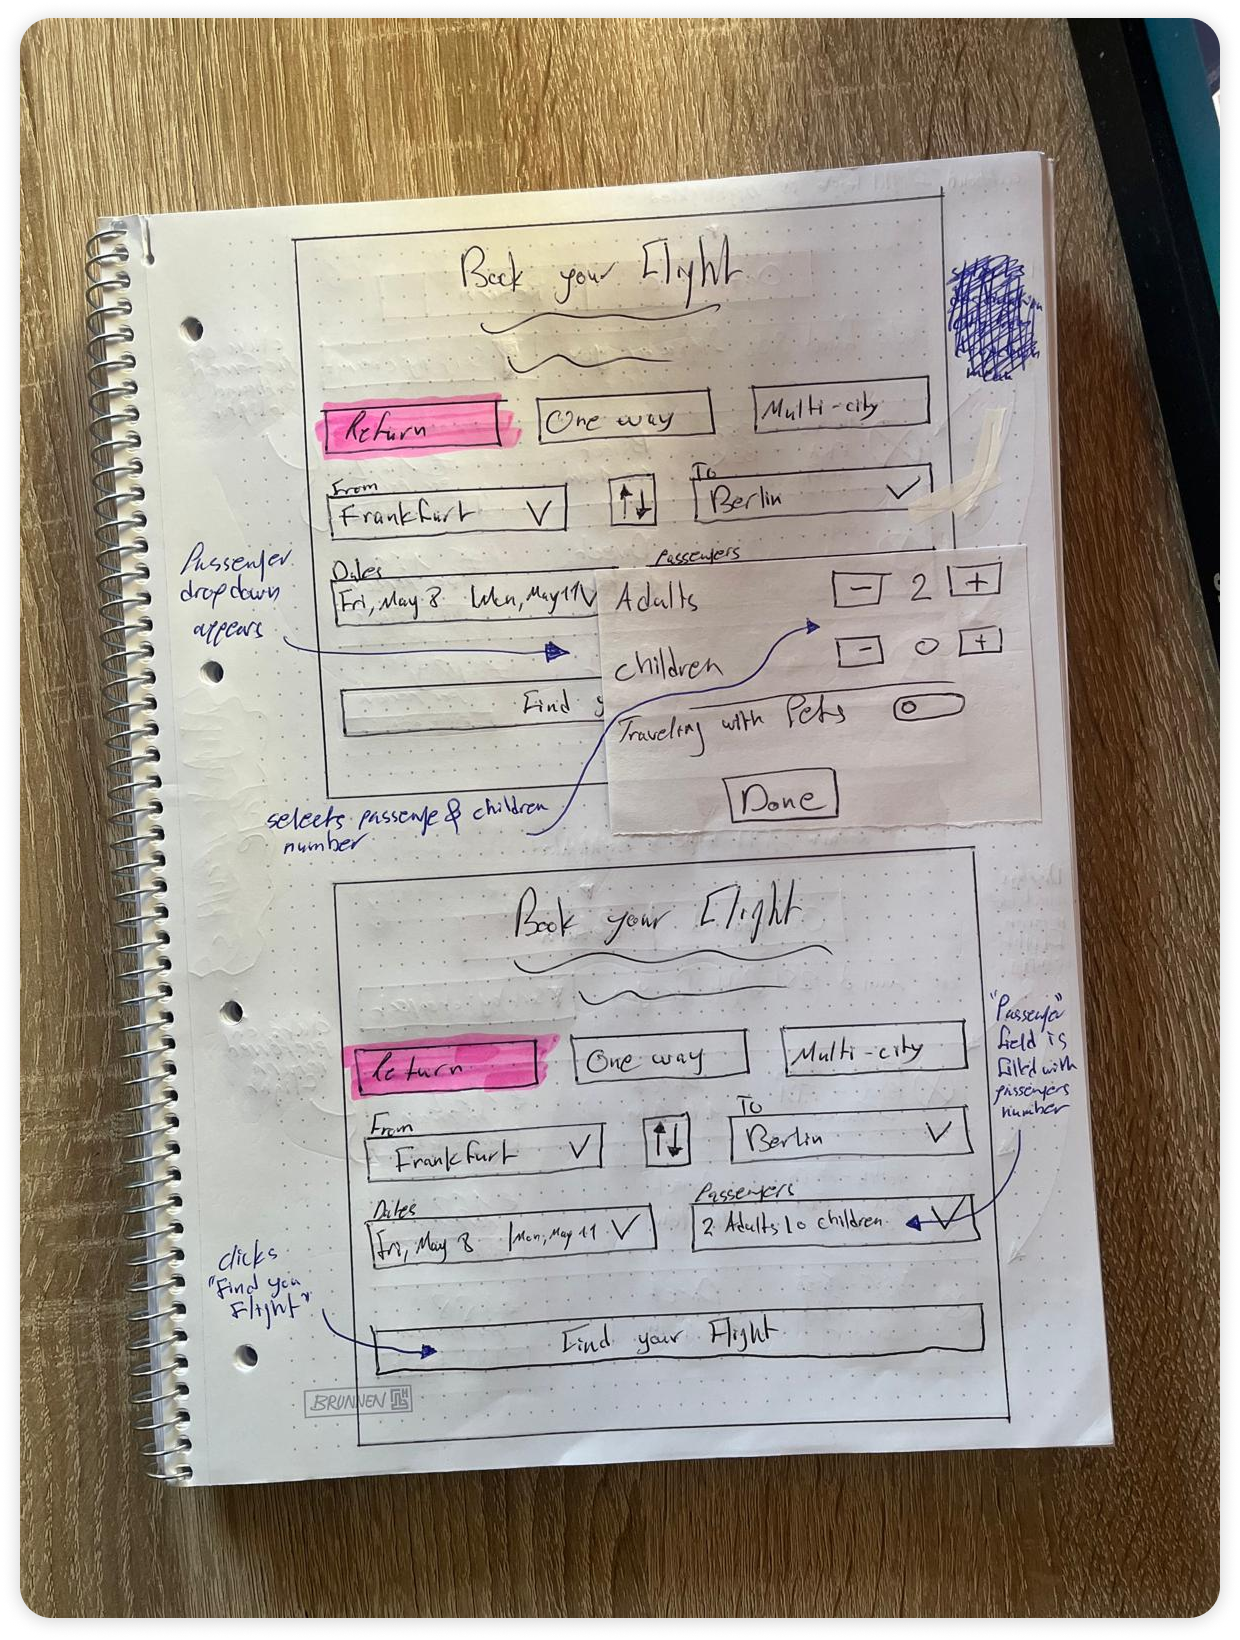 Book your Flight
Return
One way
Multi-city
From
Frankfurt
To
Berlin
Dates
Fri, May 8 Mon, May 11
Passengers
Adults - 2 +
children - 0 +
Traveling with Pets
Done
Find
Passenger
dropdown
appears
selects passenge & children
number
Book your Flight
Return
One way
Multi-city
From
Frankfurt
To
Berlin
Dates
Fri, May 8 | Mon, May 11
Passengers
2 Adults | 0 children
"Passenger"
field is
filled with
passengers
number
clicks
"Find you
Flight"
Find your Flight
BRUNNEN